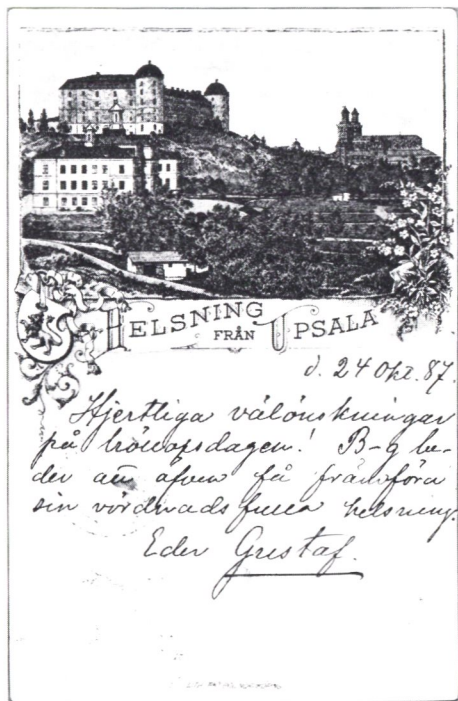 HELSNING
FRÅN UPSALA
d. 24 Okt. 87.
Hjertliga välönskningar
på bröllopsdagen! B-g be-
der att äfven få framföra
sin vördnadsfulla helsning.
Eder Gustaf.